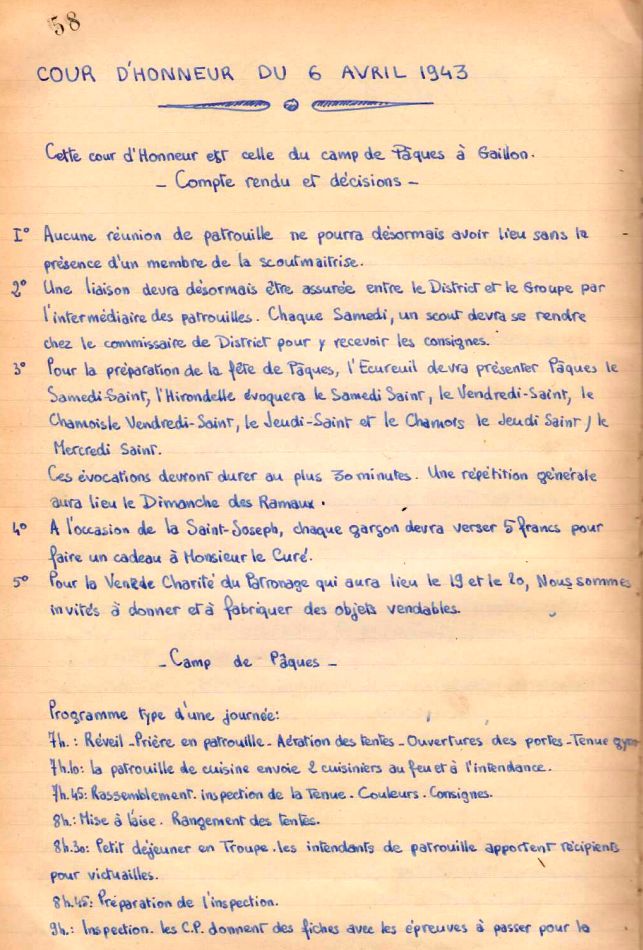 58
COUR D'HONNEUR DU 6 AVRIL 1943
Cette cour d'Honneur est celle du camp de Pâques à Gaillon.
- Compte rendu et décisions -
1° Aucune réunion de patrouille ne pourra désormais avoir lieu sans la
présence d'un membre de la scoutmaitrise.
2° Une liaison devra désormais être assurée entre le District et le Groupe par
l'intermédiaire des patrouilles. Chaque Samedi, un scout devra se rendre
chez le commissaire de District pour y recevoir les consignes.
3° Pour la préparation de la fête de Pâques, l'Ecureuil devra présenter Pâques le
Samedi-Saint, l'Hirondelle évoquera le Samedi Saint, le Vendredi-Saint, le
Chamois le Vendredi-Saint, le Jeudi-Saint et le Chamois le Jeudi Saint / le
Mercredi Saint.
Ces évocations devront durer au plus 30 minutes. Une répétition générale
aura lieu le Dimanche des Ramaux.
4° A l'occasion de la Saint-Joseph, chaque garçon devra verser 5 francs pour
faire un cadeau à Monsieur le Curé.
5° Pour la Vente de Charité du Patronage qui aura lieu le 19 et le 20, Nous sommes
invités à donner et à fabriquer des objets vendables.
- Camp de Pâques -
Programme type d'une journée:
7h.: Réveil - Prière en patrouille - Aération des tentes - Ouvertures des portes - Tenue gym
7h.10: la patrouille de cuisine envoie 2 cuisiniers au feu et à l'intendance.
7h.45: Rassemblement. inspection de la Tenue. Couleurs. Consignes.
8h.: Mise à l'aise. Rangement des tentes.
8h.30: Petit déjeuner en Troupe. les intendants de patrouille apportent récipients
pour victuailles.
8h.45: Préparation de l'inspection.
9h.: Inspection. les C.P. donnent des fiches avec les épreuves à passer pour la